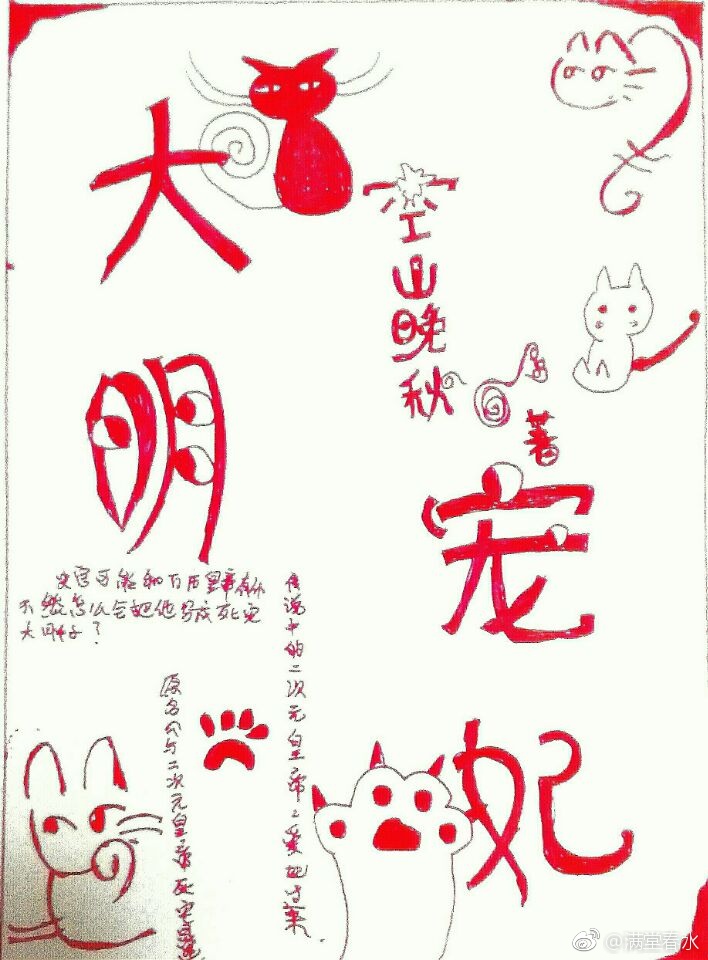 大明
宠妃
空山晚秋
著
史官可能和万历皇帝有仇
不然怎么会把他写成死宅
大胖子？
传说中的二次元皇帝！爱妃过来
原名
与二次元皇帝
@满堂看水